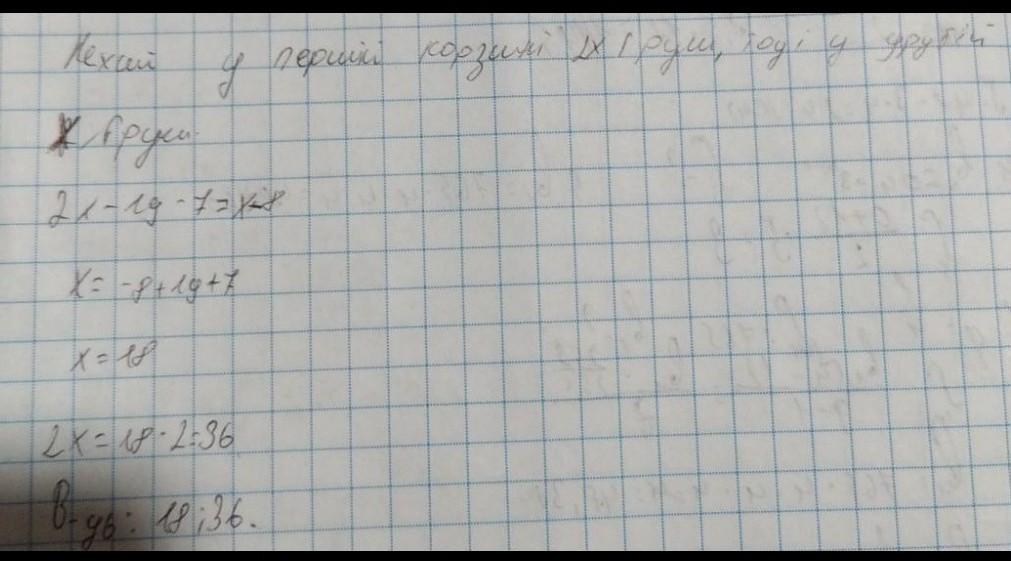 Нехай у першій корзині 2x груш, тоді у другій
x груш.
2x - 19 - 7 = x - 8
x = -8 + 19 + 7
x = 18
2x = 18 · 2 = 36
В-дь: 18; 36.